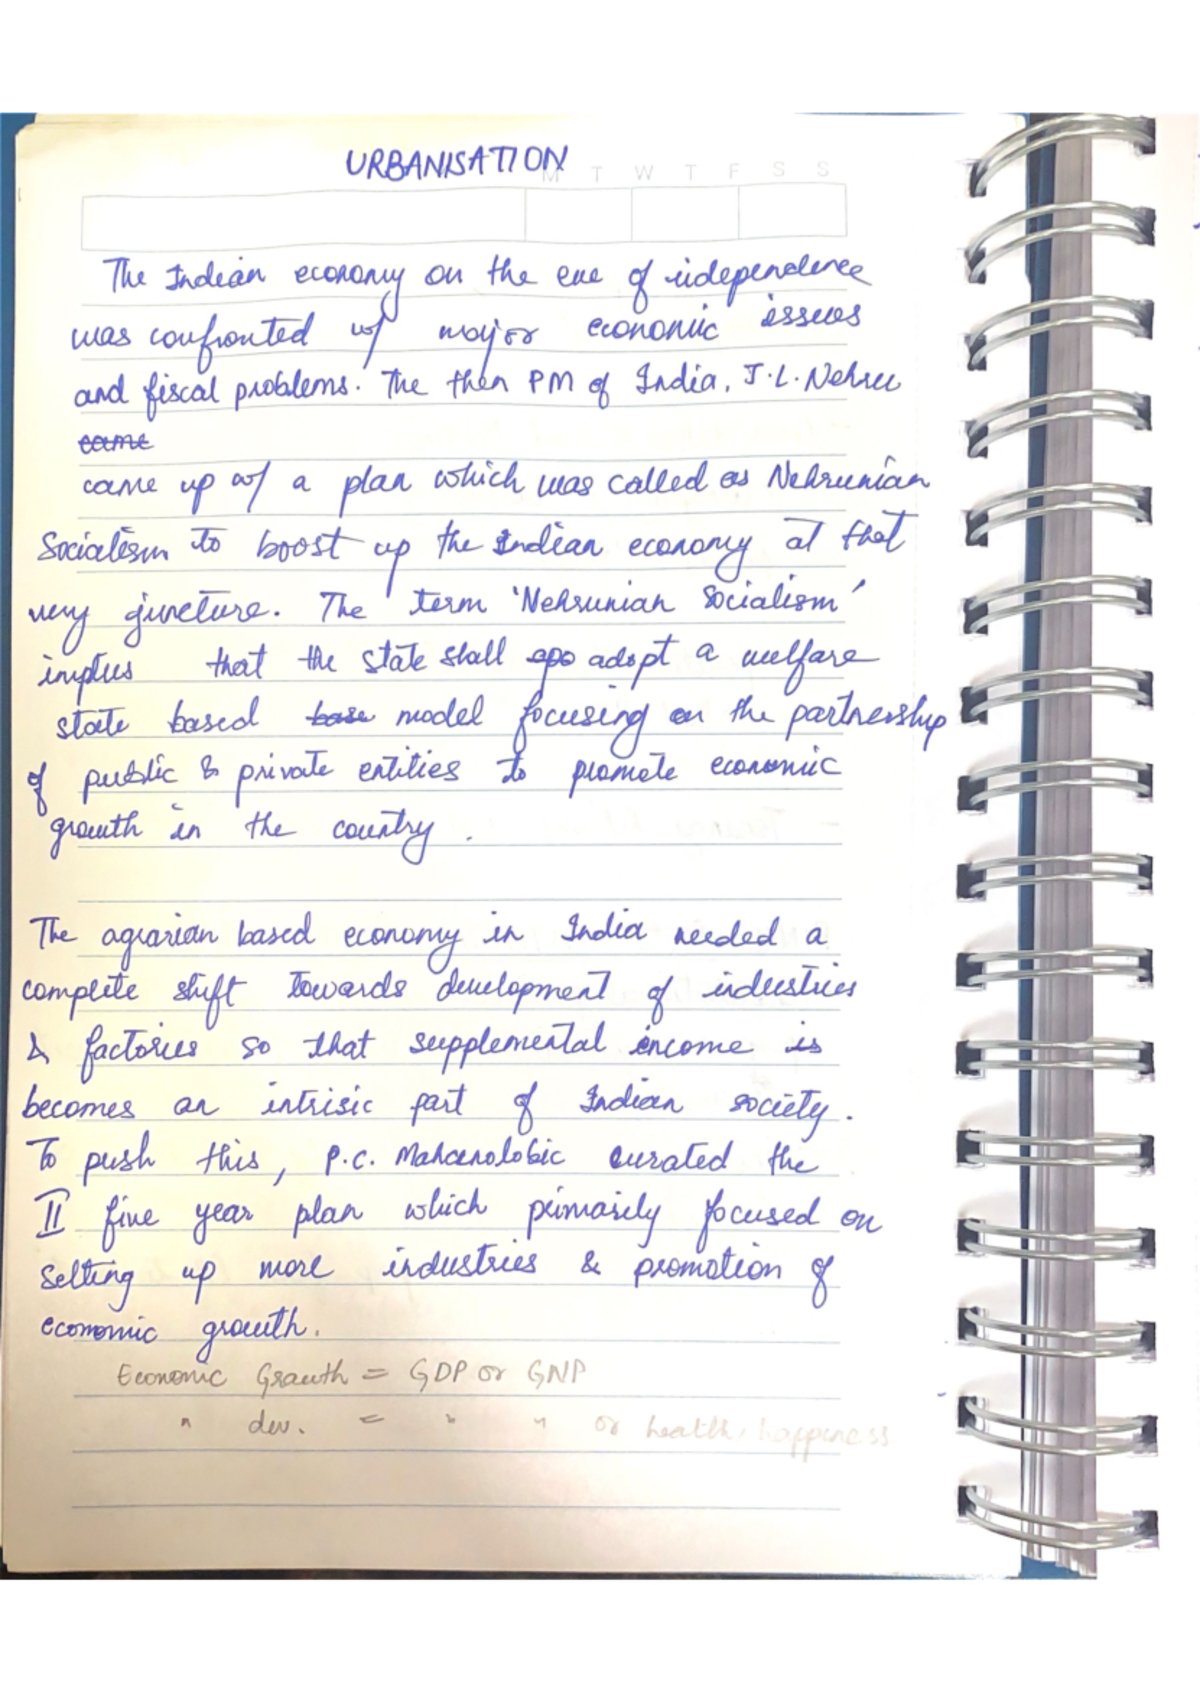 URBANISATION
M T W T F S S
The Indian economy on the eve of independence
was confronted w/ major economic issues
and fiscal problems. The then PM of India, J.L. Nehru
came
came up w/ a plan which was called as Nehrunian
Socialism to boost up the Indian economy at that
very juncture. The term 'Nehrunian Socialism'
implies that the state shall apo adopt a welfare
state based base model focusing on the partnership
of public & private entities to promote economic
growth in the country.
The agrarian based economy in India needed a
complete shift towards development of industries
& factories so that supplemental income is
becomes an intrisic part of Indian society.
To push this, P.C. Mahcanolobic curated the
II five year plan which primarily focused on
Setting up more industries & promotion of
economic growth.
Economic Growth = GDP or GNP
" dev. = " " or health, happiness